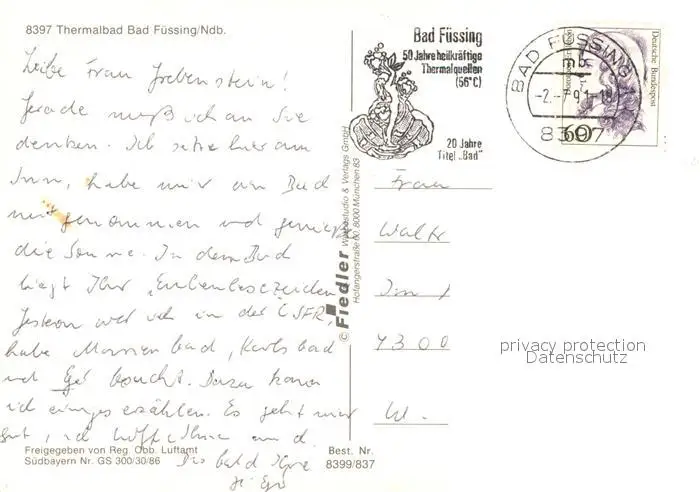 8397 Thermalbad Bad Füssing/Ndb.
Liebe Frau Grebenstein!
Gerade muß ich an Sie
denken. Ich sitze hier am
Inn, habe mir ein Buch
mitgenommen und genieße
die Sonne. In dem Buch
liegt Ihr Eulenlesezeichen
Gestern war ich in der ČSFR,
habe Marienbad, Karlsbad
und besucht. Dazu kann
ich einiges erzählen. Es geht mir
gut, und hoffe Ihnen auch.
Bis bald Ihre
Freigegeben von Reg. Obb. Luftamt
Südbayern Nr. GS 300/30/86
Best. Nr.
8399/837
© Fiedler Werbestudio & Verlags GmbH
Hofangerstraße 60, 8000 München 83
Bad Füssing
50 Jahre heilkräftige
Thermalquellen
(56°C)
20 Jahre
Titel „Bad"
BAD FÜSSING
8397
Deutsche Bundespost
60
Frau
Walter
Im
4300
privacy protection
Datenschutz